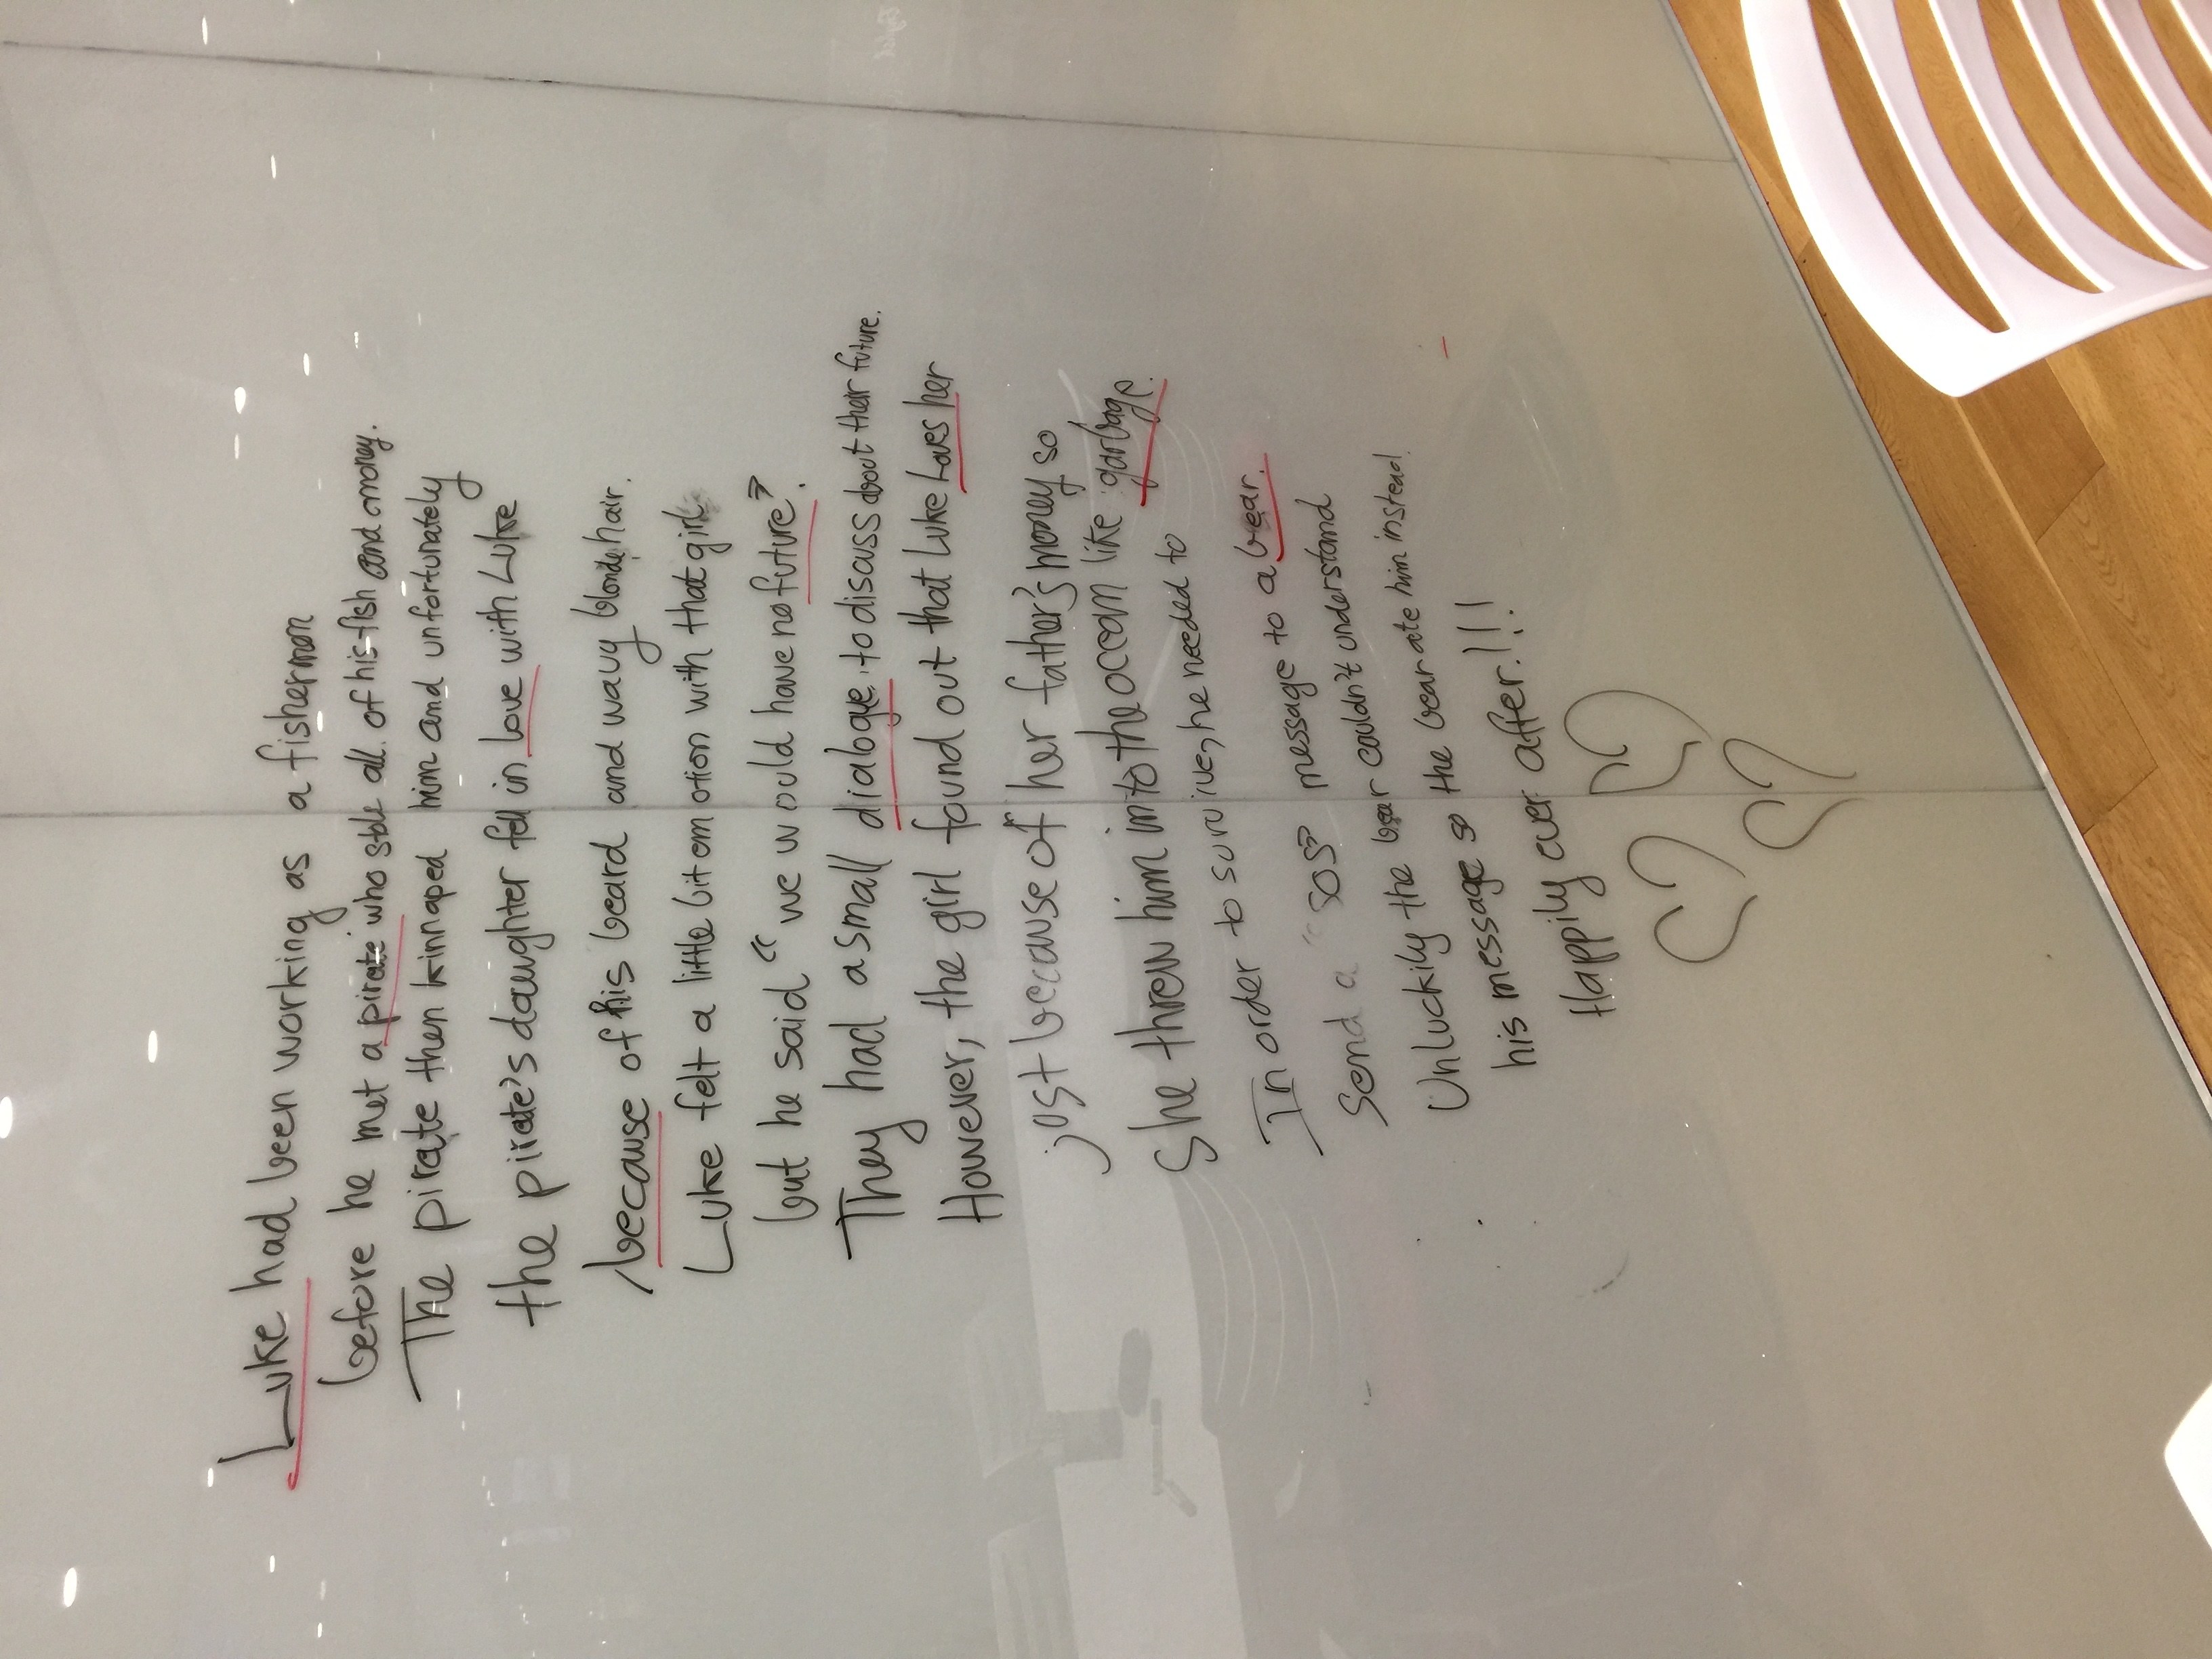 Luke had been working as a fisherman
before he met a pirate who stole all of his fish and money.
The pirate then kinnaped him and unfortunately
the pirate's daughter fell in love with Luke
because of his beard and wavy blonde hair.
Luke felt a little bit emotion with that girl
but he said "we would have no future".
They had a small dialogue to discuss about their future.
However, the girl found out that Luke Loves her
just because of her father's money so
She threw him into the ocean like garbage.
In order to survive, he needed to
Send a "SOS" message to a bear.
Unluckily the bear couldn't understand
his message so the bear ate him instead.
Happily ever after!!!